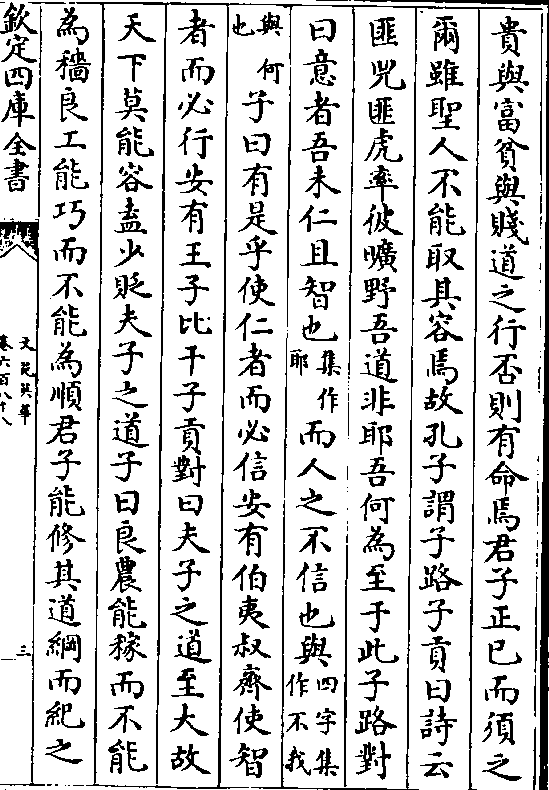 貴與富貧與賤道之行否則有命焉君子正已而須之
爾雖聖人不能取其容焉故孔子謂子路子貢曰詩云
匪兕匪虎率彼曠野吾道非耶吾何為至于此子路對
曰意者吾未仁且智也集作耶而人之不信也與四字集作不我
與何也子曰有是乎使仁者而必信安有伯夷叔齊使智
者而必行安有王子比干子貢對曰夫子之道至大故
天下莫能容盍少貶夫子之道子曰良農能稼而不能
為穡良工能巧而不能為順君子能修其道綱而紀之
欽定四庫全書
文苑英華
卷六百八十八
三